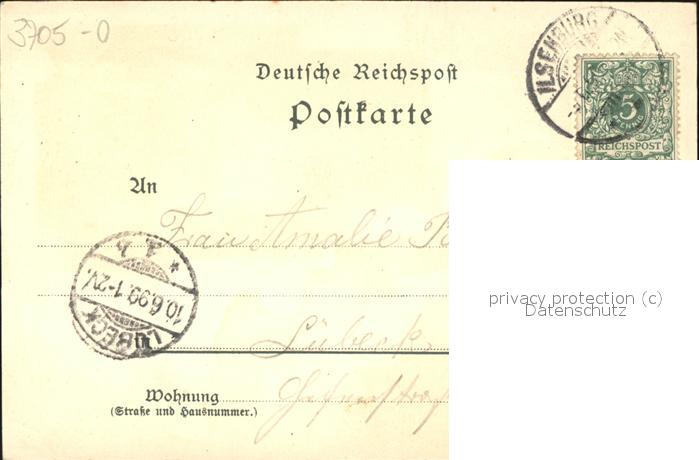 3705-0
Deutsche Reichspost
Postkarte
ILSENBURG
5
PFENNIG
REICHSPOST
An
Frau Amalie
* a h
10.6.99.1-2V.
LÜBECK
in Lübeck
Wohnung
(Straße und Hausnummer.)
privacy protection (c)
Datenschutz